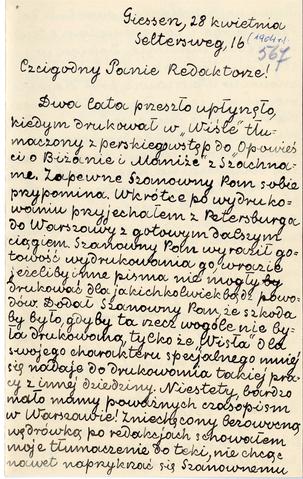 Giessen, 28 kwietnia
Seltersweg, 16 (1904 r.)
567
Czcigodny Panie Redaktorze!
Dwa lata przeszło upłynęło,
kiedym drukował w „Wiśle” tłu-
maczony z perskiego wstęp do „Opowieś-
ci o Biżanie i Maniże” z Szachna-
me. Zapewne Szanowny Pan sobie
przypomina. Wkrótce po wydruko-
waniu przyjechałem z Petersburga
do Warszawy z gotowym dalszym
ciągiem. Szanowny Pan wyraził go-
towość wydrukowania go, w razie
jeżeliby inne pisma nie mogły by
drukować dla jakichkolwiekbądź powo-
dów. Dodał Szanowny Pan, że szkoda
by było, gdyby ta rzecz wogóle nie by-
ła drukowana, tylko że „Wisła” dla
swojego charakteru specjalnego mniej
się nadaje do drukowania takiej pra-
cy z innej dziedziny. Niestety, bardzo
mało mamy poważnych czasopism
w Warszawie! Zniechęcony bezowocną
wędrówką po redakcjach schowałem
moje tłumaczenie do teki, nie chcąc
nawet naprzykrzać się Szanownemu